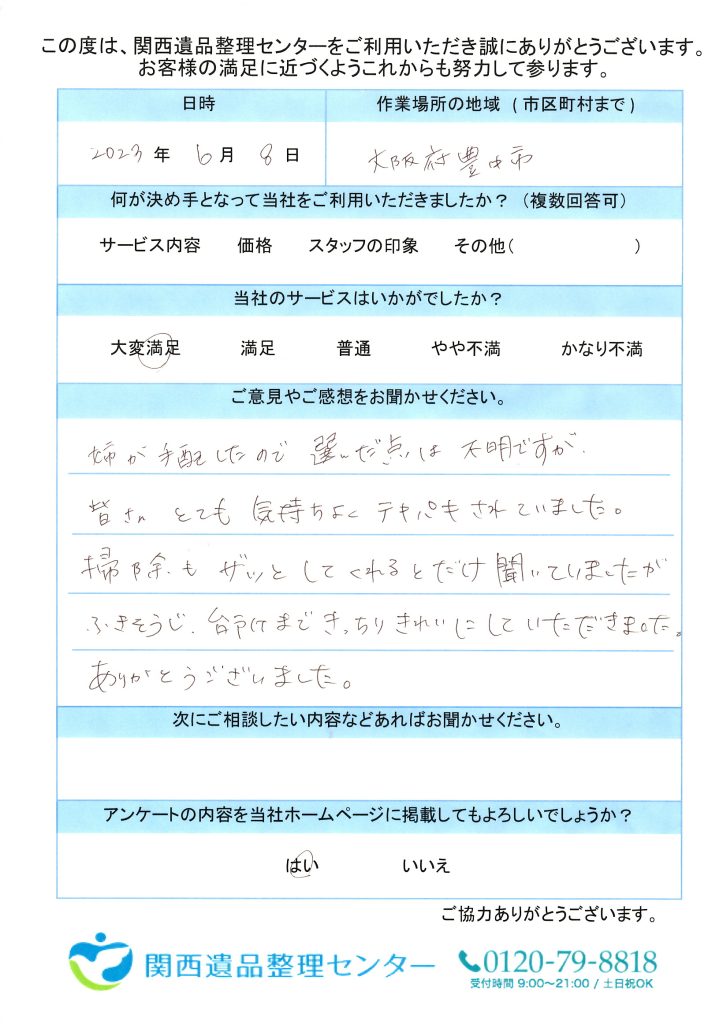 この度は、関西遺品整理センターをご利用いただき誠にありがとうございます。
お客様の満足に近づくようこれからも努力して参ります。
日時
作業場所の地域 (市区町村まで)
2023年 6月 8日
大阪府豊中市
何が決め手となって当社をご利用いただきましたか？（複数回答可）
サービス内容 価格 スタッフの印象 その他( )
当社のサービスはいかがでしたか？
大変満足 満足 普通 やや不満 かなり不満
ご意見やご感想をお聞かせください。
姉が手配したので 選んだ点は 不明ですが、
皆さん とても 気持ちよく テキパキされていました。
掃除も ザッと してくれるとだけ 聞いていましたが
ふきそうじ、 まで きっちりきれいにしていただきました。
ありがとうございました。
次にご相談したい内容などあればお聞かせください。
アンケートの内容を当社ホームページに掲載してもよろしいでしょうか？
はい いいえ
ご協力ありがとうございます。
関西遺品整理センター
0120-79-8818
受付時間 9:00〜21:00 / 土日祝OK